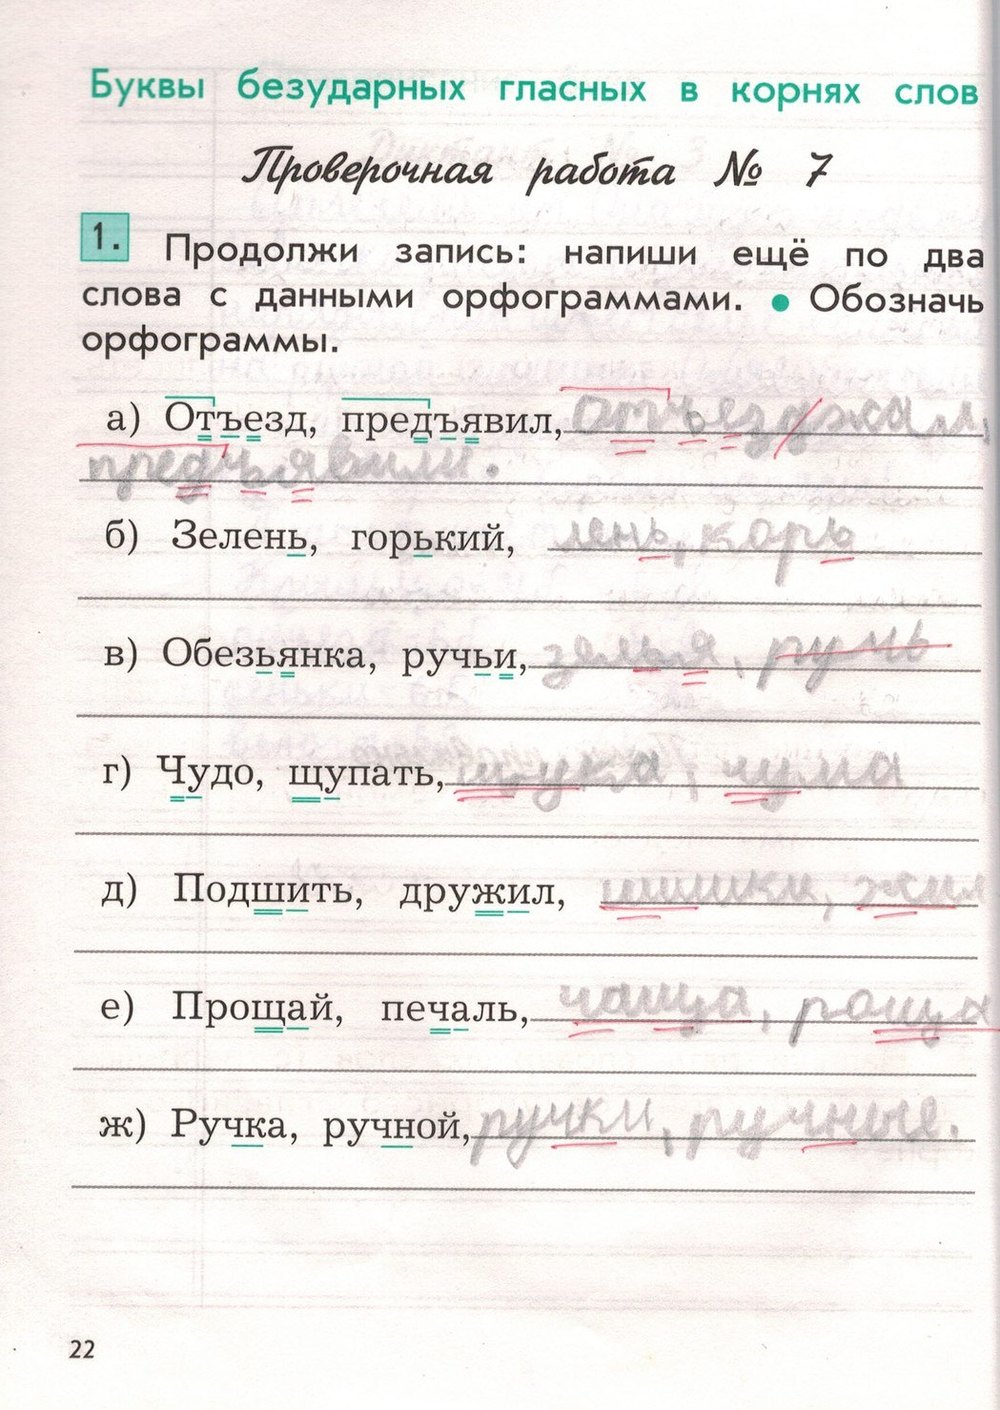 Буквы безударных гласных в корнях слов
Проверочная работа № 7
1. Продолжи запись: напиши ещё по два
слова с данными орфограммами. • Обозначь
орфограммы.
а) Отъезд, предъявил, отъезжал,
предъявили.
б) Зелень, горький, лень, корь
в) Обезьянка, ручьи, зелья, ручь
г) Чудо, щупать, щука, чума
д) Подшить, дружил, шишки, жил
е) Прощай, печаль, чаща, роща
ж) Ручка, ручной, ручки, ручные.
22